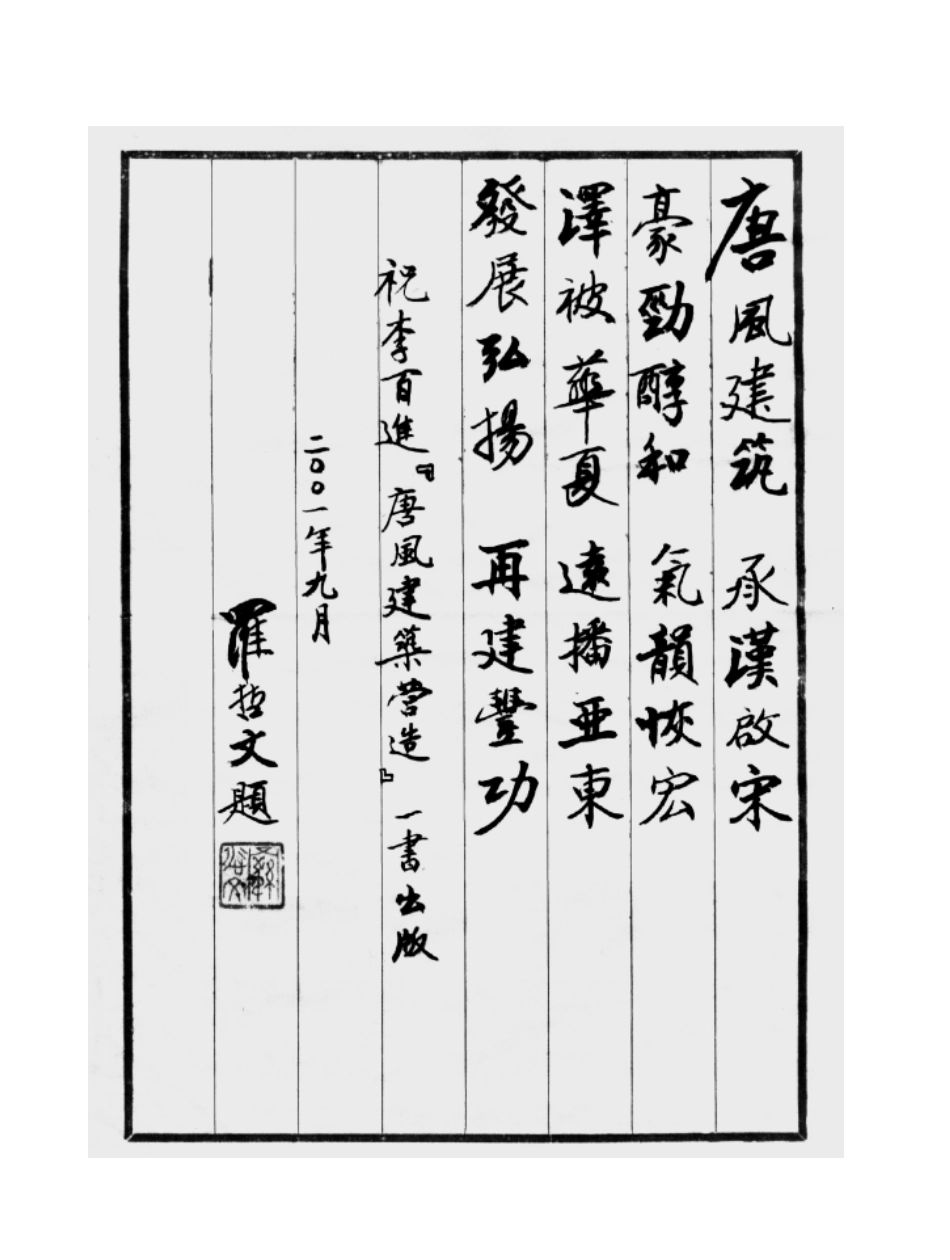 唐風建筑 承漢啟宋
豪勁醇和 氣韻恢宏
澤被華夏 遠播亚東
發展弘揚 再建豐功
祝李百進『唐風建築营造』一書出版
二〇〇一年九月
羅哲文題